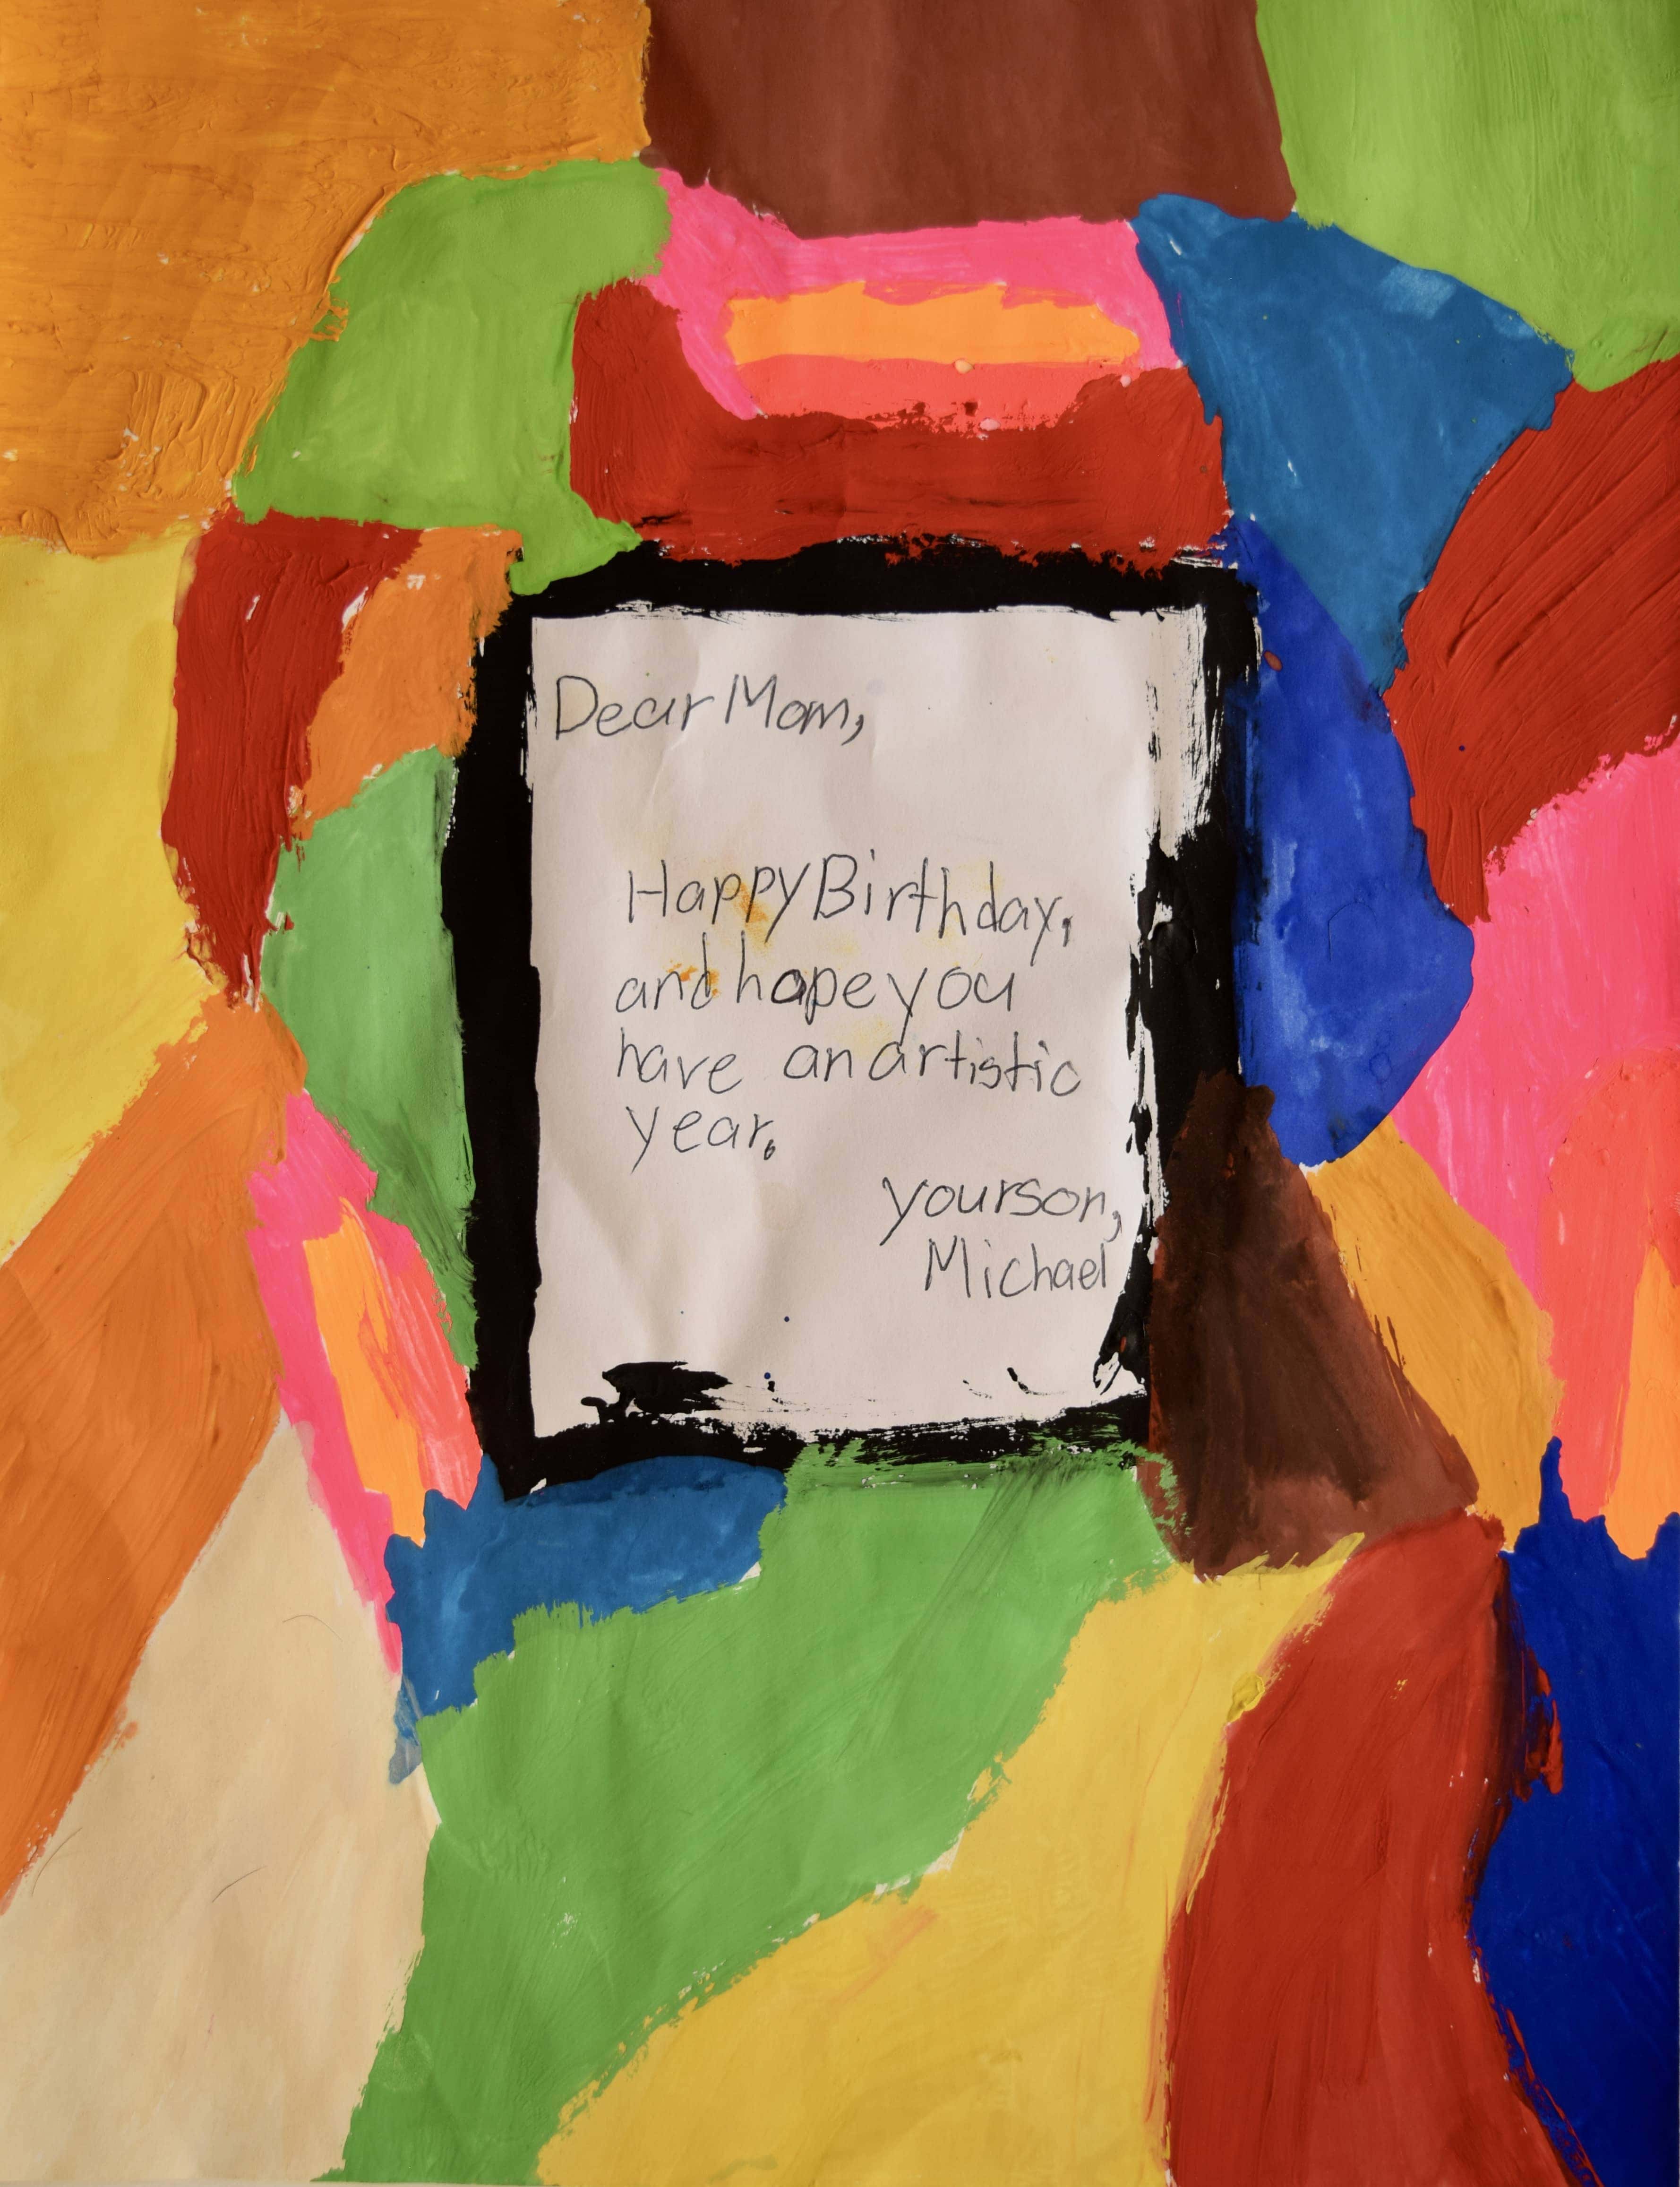 Dear Mom,
Happy Birthday,
and hope you
have an artistic
year.
your son,
Michael